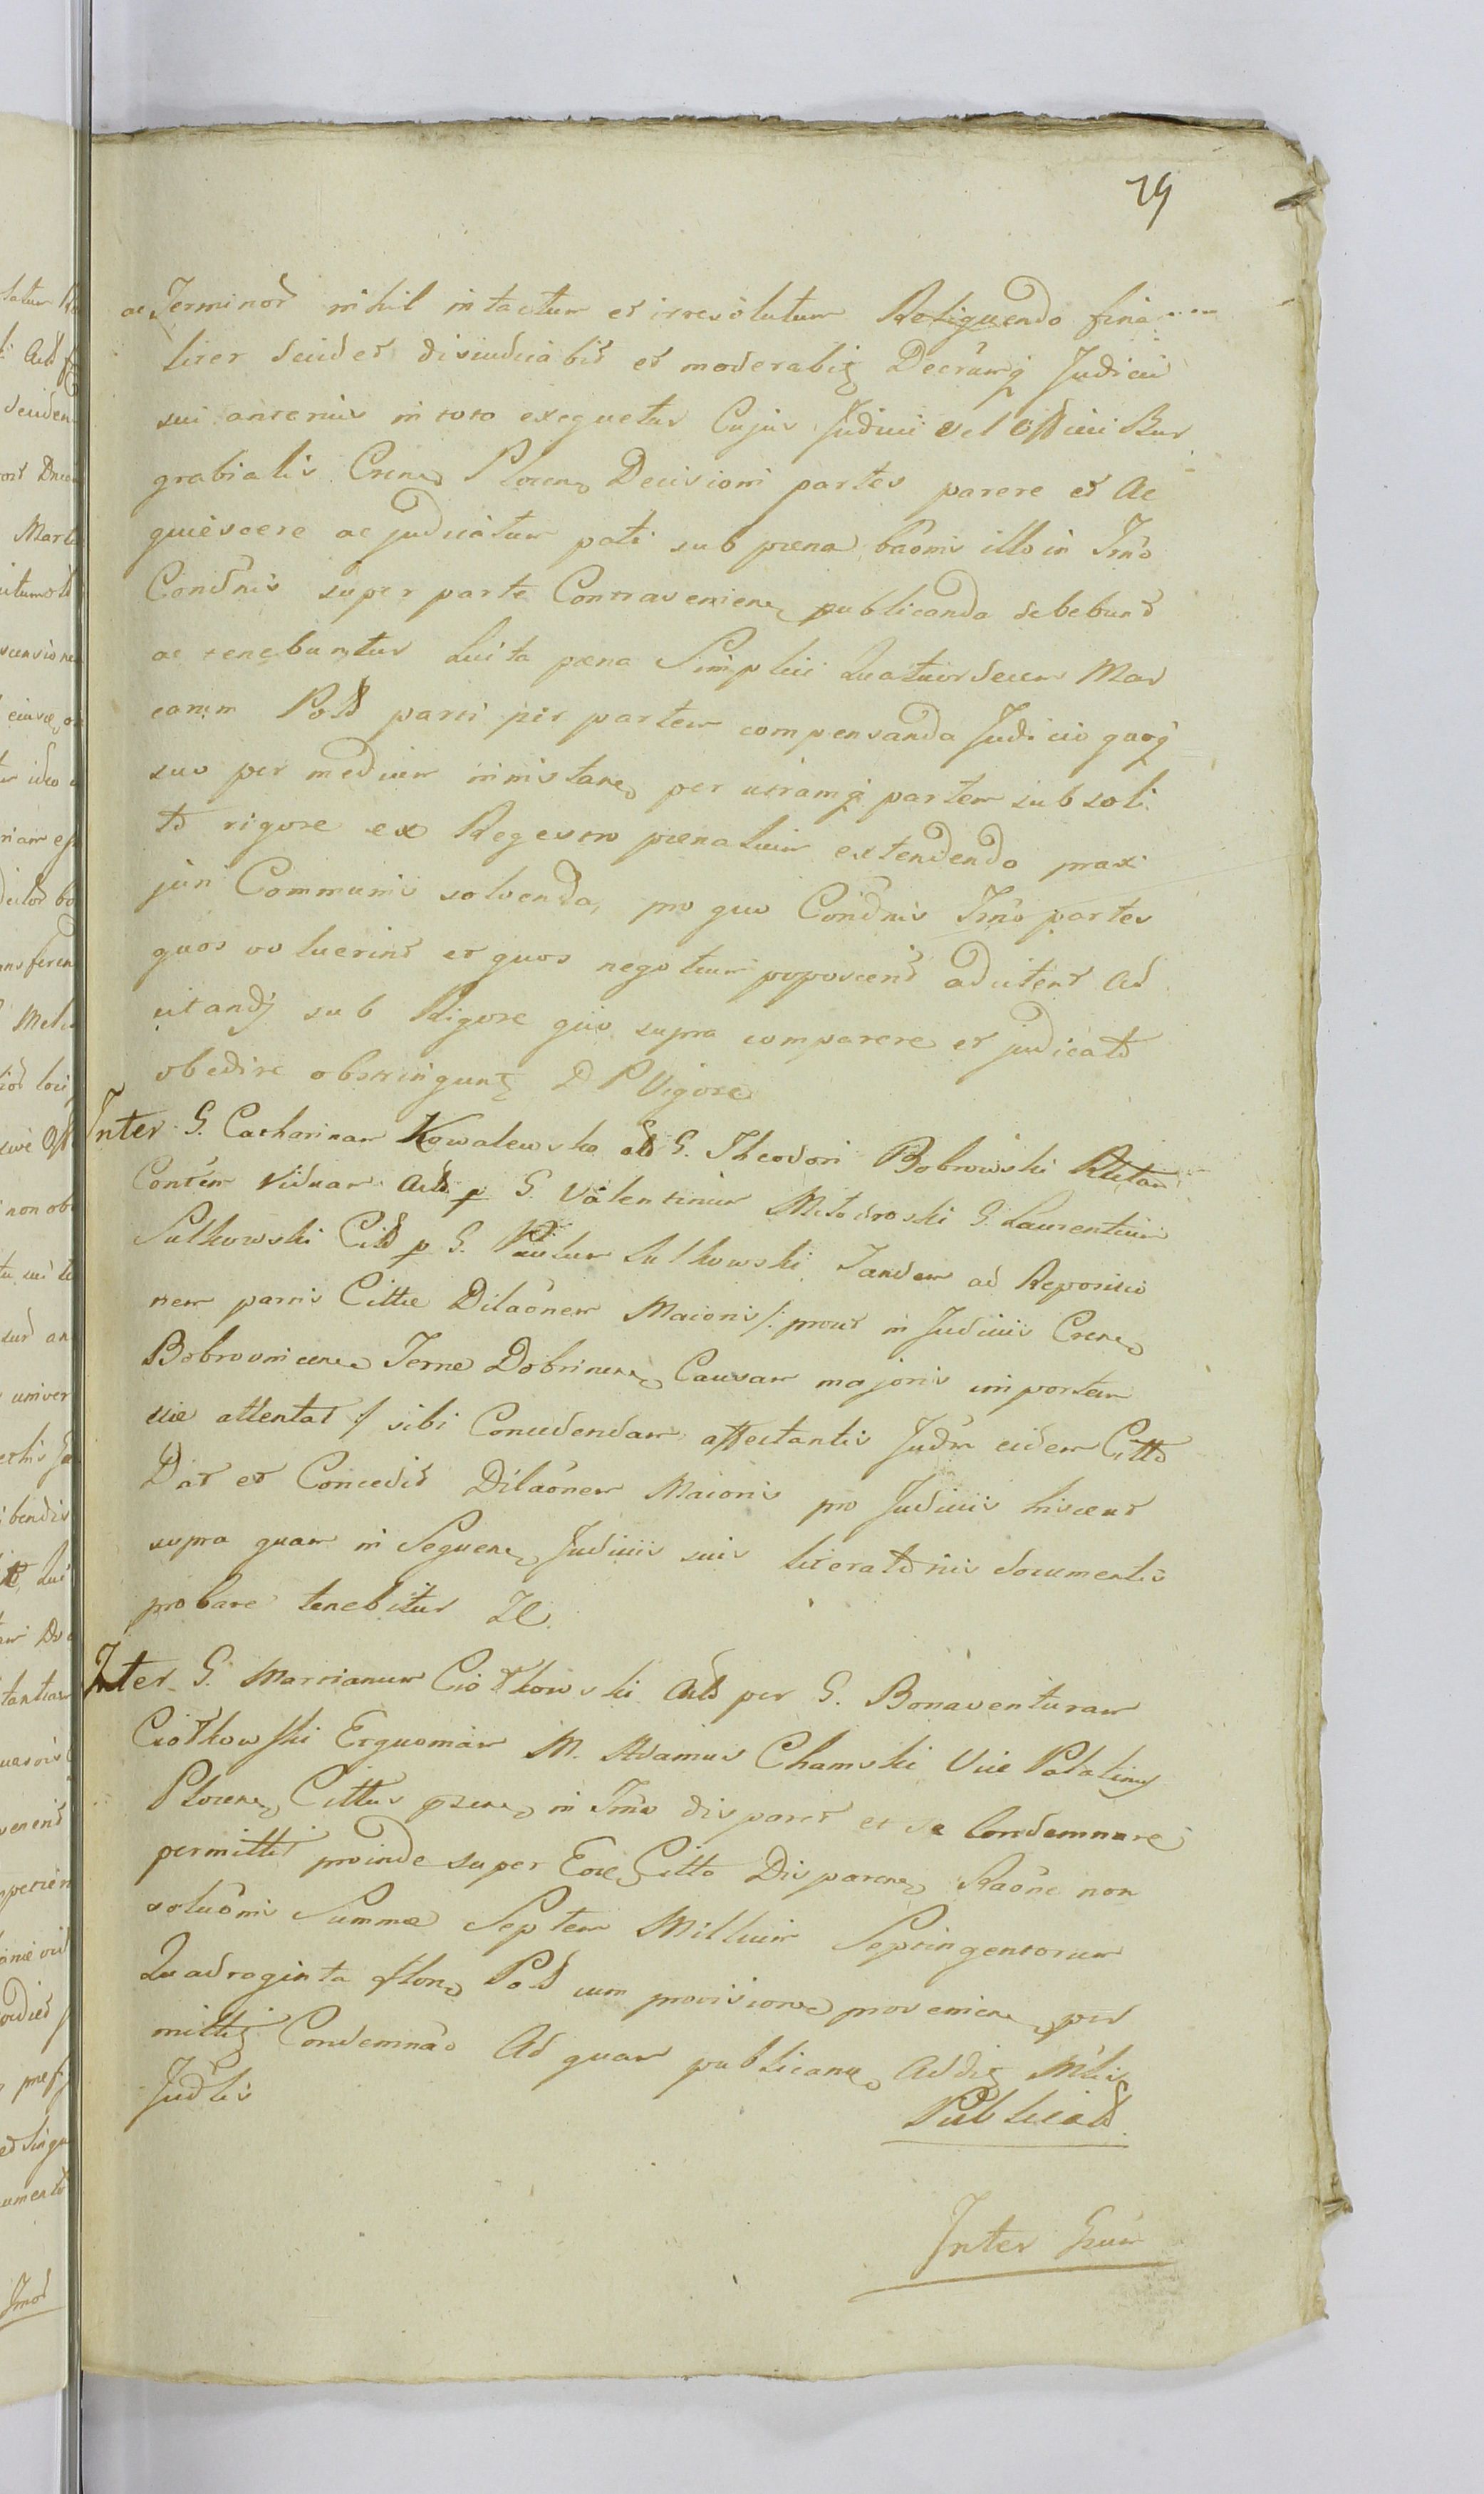 79
ac Terminor nihil intactum et irresolutum Reliquendo fina
liter Scidet disiudicabit et moderabit Decrumq Judicii
sui anterius in toto exequetur Cujus Judicii vel Officii Bur
grabialis Crens Plocens Decisioni partes parere et Ac
quiescere ac judicatum pati sub pœna baõnis illo in Tmõ
Condnis super parte Contravenien publicanda debebunt
ac tenebuntur Luita pœna Simplici Quatuordecim Mar
carum Pold parti per partem compensanda Judicio quoq
suo per medium in instan per utramq partem sub soli
to rigore ex Regestro pœnalium extendendo praxi
juri Communis solvenda, pro quo Condnis Tmõ partes
quos voluerint et quos negotium poposcerit adcitent Ad
citandj sub Rigore quo supra comparere et judicato
obedire obstringunt D P Vigore
Inter G. Catharinam Kowalewska olt G. Theodori Bobrowski Relitam
Contem Viduam Actt p G. Valentinum Mlodowski G. Laurentium
Sulkowski Citt p G. Paulum Sulkowski Tandem ad Repositio
nem partis Cittæ Dilaõnem Maioris /: prout in Judiciis Crens
Bobrovnicens Terræ Dobrinens Causam majoris importan
tiæ attentat :/ sibi Concedendam affectantis Judm eidem Citto
Dat et Concedit Dilaõnem Maioris pro Judiciis hisce ut
supra quam in Sequen Judiciis suis literatoriis documentis
probare tenebitur Ze
Inter G. Martianum Ciołkowski Actt per G. Bonaventuram
Ciołkowski Et quoniam M. Adamus Chamski Vice Palatinus
Plocens Cittus prens in Tmõ disparet et se Condemnare
permittit proinde super Eoe Citto Disparen Raõne non
soluõnis Summæ Septem Millium Septingentorum
Quadraginta flor Pold cum provisione provenien per
mittit Condemnaõ Ad quam publican Addit Mlis
Judlis
Publicatt
Inter Gsum